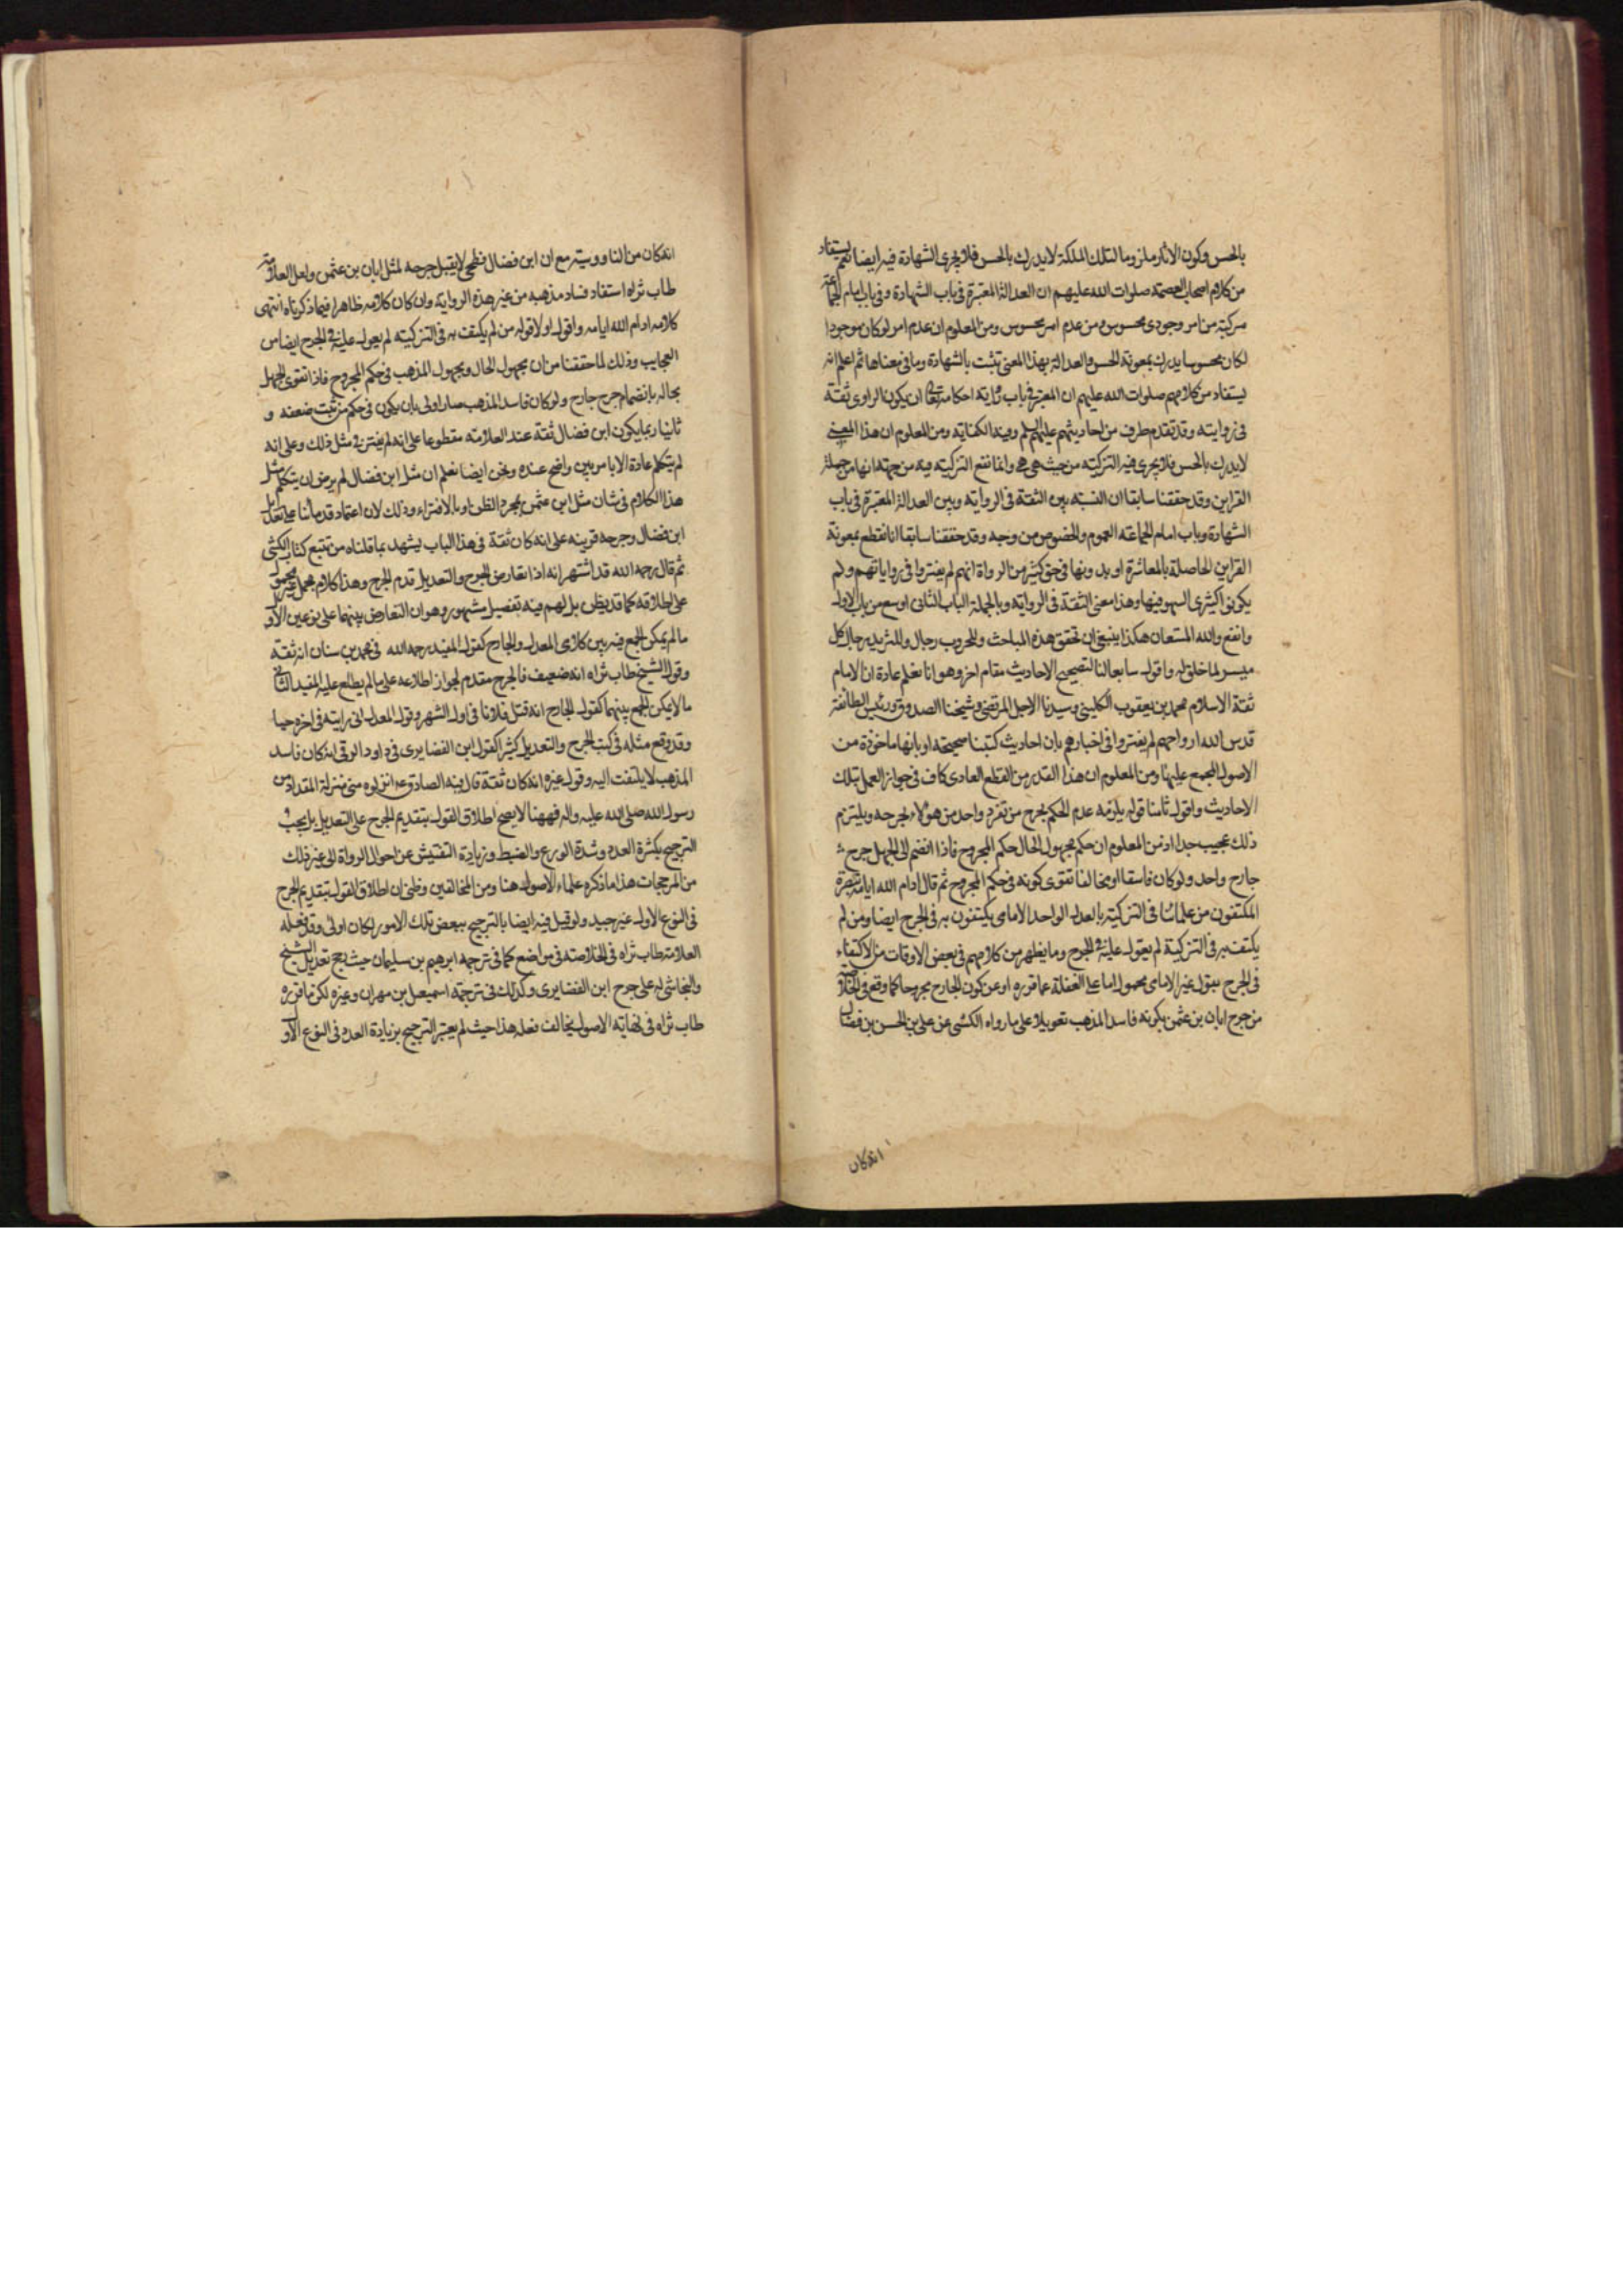 بالحس وكون الاثار ملزوما لتلك الملكة لا يدرك بالحس فلا يجرى الشهادة فيه ايضا نعم يستفاد
من كلام اصحاب العصمة صلوات الله عليهم ان العدالة المعتبرة فى باب الشهادة وفى باب امام الجماعة
مركبة من امر وجودى محسوس ومن عدم امر محسوس ومن المعلوم ان عدم امر لو كان موجودا
لكان محسوسا يدرك بمعونة الحس والعدالة بهذا المعنى تثبت بالشهادة وما فى معناها ثم اعلم انه
يستفاد من كلامهم صلوات الله عليهم ان المعتبر فى باب رواية احكامه تعالى ان يكون الراوى ثقة
فى روايته وقد تقدم طرف من احاديثهم عليهم السلم وفيه الكفاية ومن المعلوم ان هذا المعنى
لا يدرك بالحس فلا يجرى فيه التزكية من حيث هى هى وانما تنفع التزكية فيه من جهة انها من جملة
القراين وقد حققنا سابقا ان النسبة بين الثقة فى الرواية وبين العدالة المعتبرة فى باب
الشهادة وباب امام الجماعة العموم والخصوص من وجه وقد حققنا سابقا انا نقطع بمعونة
القراين الحاصلة بالمعاشرة او بدونها فى حق كثير من الرواة انهم لم يفتروا فى رواياتهم ولم
يكونوا كثيرى السهو فيها وهذا معنى الثقة فى الرواية وبالجملة الباب الثانى اوسع من باب الاول
وانفع والله المستعان هكذا ينبغى ان تحقق هذه المباحث وللحروب رجال وللثريد رجال كل
ميسر لما خلق له واقول سابعا لنا لتصحيح الاحاديث مقام اخر وهو انا نعلم عادة ان الامام
ثقة الاسلام محمد بن يعقوب الكلينى وسيدنا الاجل المرتضى وشيخنا الصدوق ورئيس الطائفة
قدس الله ارواحهم لم يفتروا فى اخبارهم بان احاديث كتبنا صحيحة او بانها ماخوذة من
الاصول المجمع عليها ومن المعلوم ان هذا القدر من القطع العادى كاف فى جواز العمل بتلك
الاحاديث واقول ثامنا قوله يلزمه عدم الحكم بجرح من تفرد واحد من هؤلاء بجرحه ويلتزم
ذلك عجيب جدا اذ من المعلوم ان حكم مجهول الحال حكم المجروح فاذا انضم الى الجهل جرح
جارح واحد ولو كان فاسقا او مخالفا تقوى كونه فى حكم المجروح ثم قال ادام الله ايامه تبصرة
المكتفون من علمائنا فى التزكية بالعدل الواحد الامامى يكتفون به فى الجرح ايضا ومن لم
يكتف به فى التزكية لم يعول عليه فى الجرح وما يظهر من كلامهم فى بعض الاوقات من الاكتفاء
فى الجرح بقول غير الامامى محمول اما على الغفلة عما قرره او عن كون الجارح مجروحا كما وقع فى الخلاصة
من جرح ابان بن عثمن بكونه فاسد المذهب تعويلا على ما رواه الكشى عن على بن الحسن بن فضال
انه كان
انه كان من الناووسية مع ان ابن فضال فطحى لا يقبل جرحه لمثل ابان بن عثمن ولعل العلامة
طاب ثراه استفاد فساد مذهبه من غير هذه الرواية وان كان كلامه ظاهرا فيما ذكرناه انتهى
كلامه ادام الله ايامه واقول اولا قوله من لم يكتف به فى التزكية لم يعول عليه فى الجرح ايضا من
العجايب وذلك لما حققنا من ان مجهول الحال ومجهول المذهب فى حكم المجروح فاذا تقوى الجهل
بحاله بانضمام جرح جارح ولو كان فاسد المذهب صار اولى بان يكون فى حكم من ثبت ضعفه و
ثانيا ربما يكون ابن فضال ثقة عند العلامة مقطوعا على انه لم يفتر فى مثل ذلك وعلى انه
لم يتكلم عادة الا بامر بين واضح عنده ونحن ايضا نعلم ان مثل ابن فضال لم يرض ان يتكلم مثل
هذا الكلام فى شان مثل ابن عثمن بمجرد الظن او بالافتراء وذلك لان اعتماد قدمائنا على تعديل
ابن فضال وجرحه قرينة على انه كان ثقة فى هذا الباب يشهد بما قلناه من تتبع كتاب الكشى
ثم قال رحمه الله قد اشتهر انه اذا تعارض الجرح والتعديل قدم الجرح وهذا كلام مجمل غير محمول
على اطلاقه كما قد يظن بل لهم فيه تفصيل مشهور وهو ان التعارض بينهما على نوعين الاول
ما لم يمكن الجمع فيه بين كلامى المعدل والجارح كقول المفيد رحمه الله فى محمد بن سنان انه ثقة
وقول الشيخ طاب ثراه انه ضعيف فالجرح مقدم لجواز اطلاعه على ما لم يطلع عليه المفيد الثانى
ما لا يمكن الجمع بينهما كقول الجارح انه قتل فلانا فى اول الشهر وقول المعدل انى رايته فى اخره حيا
وقد وقع مثله فى كتب الجرح والتعديل كثيرا كقول ابن الغضايرى فى داود الرقى انه كان فاسد
المذهب لا يلتفت اليه وقول غيره انه كان ثقة قال فيه الصادق ع انزلوه منى منزلة المقداد من
رسول الله صلى الله عليه واله فههنا لا يصح اطلاق القول بتقديم الجرح على التعديل بل يجب
الترجيح بكثرة العدد وشدة الورع والضبط وزيادة التفتيش عن احوال الرواة الى غير ذلك
من المرجحات هذا ما ذكره علماء الاصول هنا ومن المخالفين وظنى ان اطلاق القول بتقديم الجرح
فى النوع الاول غير جيد ولو قيل فيه ايضا بالترجيح ببعض تلك الامور لكان اولى وقد فعله
العلامة طاب ثراه فى الخلاصة فى مواضع كما فى ترجمة ابرهيم بن سليمان حيث رجح تعديل الشيخ
والنجاشى له على جرح ابن الغضايرى وكذلك فى ترجمة اسمعيل بن مهران وغيره لكن ما قرره
طاب ثراه فى نهاية الاصول يخالف فعله هذا حيث لم يعتبر الترجيح بزيادة العدد فى النوع الاول